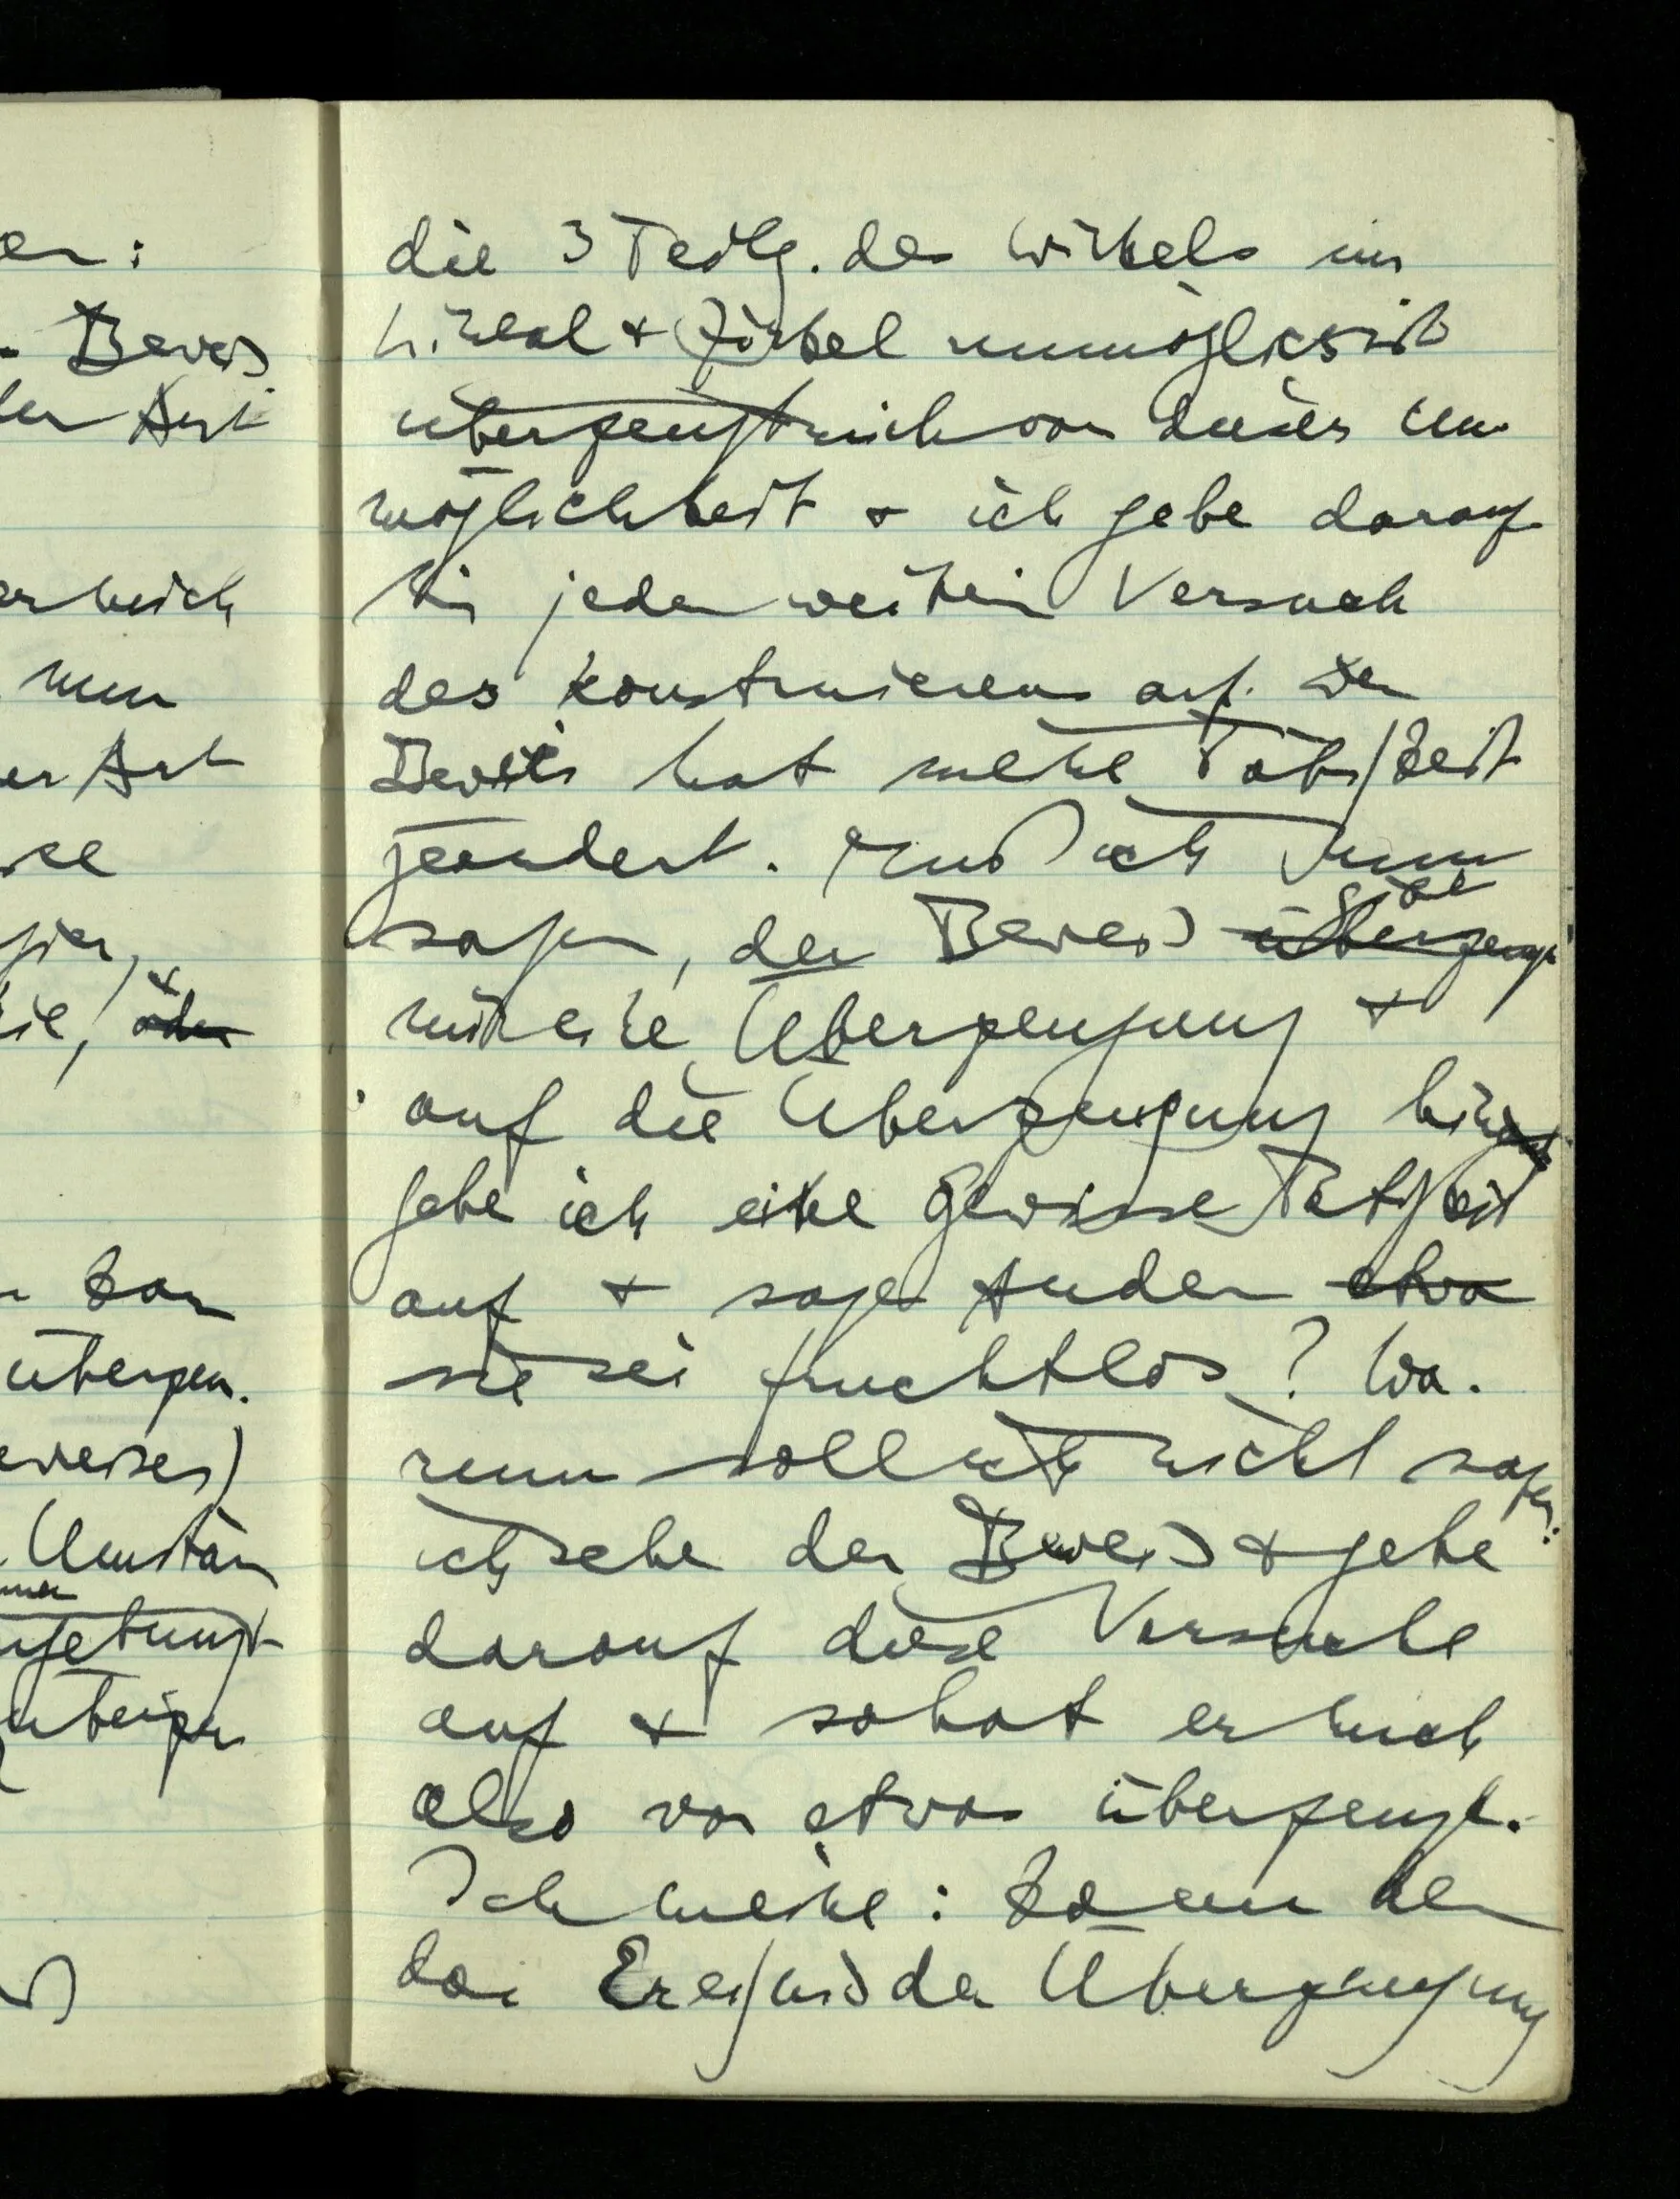 die 3 Teilg. des Winkels mit
Lineal & Zirkel unmöglich ist
überzeugt mich von dieser Un-
möglichkeit & ich gebe darauf
hin jeden weitern Versuch
des Konstruierens auf. Der
Beweis hat meine Tätigkeit
geändert. Muß ich nun
sagen, der Beweis überzeugt gibt
mir eine Überzeugung &
auf die Überzeugung hin
gebe ich eine gewisse Tätigkeit
auf & sage Andern etwa
sie sei fruchtlos? Wa-
rum soll ich nicht sagen:
ich sehe den Beweis & gebe
darauf diese Versuche
auf & so hat er mich
also von etwas überzeugt.
Ich meine: kann denn
das Ereignis der Überzeugung
er:
Beweis
der Art
er mich
nun
er Art
& oder
kan
überzeu-
Beweises)
Umstän